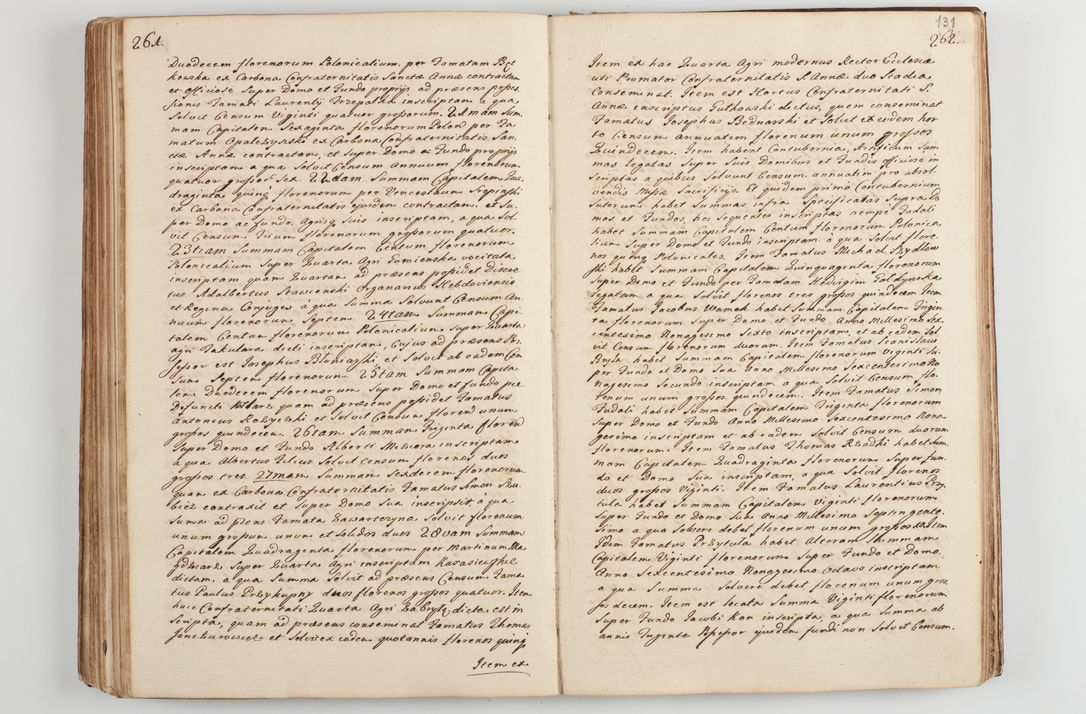 261.
Duodecem florenorum Polonicalium. per Famatam
kowska ex Carbona Confraternitatis Sanctæ Annæ contractam
et officiose Super Domo et Fundo proprijs ad præsens posses
sionis Famati Laurentij Trzepatka inscriptam a qua
solvit Censum Viginti quatuor grossorum. 21mam Sum
mam Capitalem Sexaginta florenorum Polon per Fa
matum ex Carbona Confraternitatis San
ctæ Annæ contractam, et Super Domo ac Fundo proprijs
inscriptam a qua Solvit Censum Annuum florenorum
quatuor grossos Sex. 22dam Summam Capitalem Qua
draginta quinq florenorum per Venceslaum
ex Carbona Confraternitatis ejusdem contractam. et Su
per Domo ac fundo, Agrisq Suis inscriptam, a qua Sol
vit Censum Trium florenorum grossorum quatuor.
23tiam Summam Capitalem Centum florenorum
Polonicalium Super Quarta Agri Fumienska vocitata
inscriptam quam Quartam ad præsens possidet Discre
tus Adalbertus Organarius Hebdoviensis
et Regina Conjuges a qua Summa Solvunt Censum An
nuum florenorum Septem 24tam Summam Capi
talem Centum florenorum Polonicalium Super Quarta
agri Takulara dicti inscriptam, Cujus ad præsens Pos
sessor est Josephus et Solvit ab eadem Cen
sum Septem florenorum. 25tam Summam Capita
lem Duodecem florenorum Super Domo et fundo per
Defuncti quam ad præsens possidet Famatus
Antonius et Solvit Censum floren unum
grossos quindecem. 26tam Summam Triginta floren
Super Domo et Fundo Alberti inscriptam
a qua Albertus Filius Solvit Censum florenos duos
grossos tres. 27mam Summam Sexdecem florenorum
quam ex Carbona Confraternitatis Famatus Simon
contraxit et Super Domo Sua inscripsit, a qua
Suma ad præns Famata Zawartczyna Solvit florenum
unum grossum unum et Solidos duos 28vam Summam
Capitalem Quadraginta florenorum per Martinum
Super Quarta Agri inscriptam
dictam. a qua Summa Solvit ad præsens Censum Fama
tus Paulus Przykupny duos florenos grossos quatuor. Item
huic Confraternitati Quarta Agri dicta est in
scripta, quam ad præsens conseminat Famatus Thomas
et Solvit ex eadem quotannis florenos quinq
Item ex
131
262.
Item ex hac Quarta Agri modernus Rector Ecclesiæ
uti Promotor Confraternitatis S. Annæ duo Stadia
Conseminat. Item est Hortus Confraternitati S.
Annæ inscriptus Gutkowski dictus, quem conseminat
Famatus Josephus Bednarski et Solvit ex eodem hor
to Censum annuatim florenum unum grossos
Quindecem. Item habent Contubernia, Artificum Sum
mas legatas Super Suis Domibus et Fundis officiose in
scriptas a quibus Solvunt Censum annuatim pro absol
vendis Missæ Sacrificijs. Et quidem primo Contubernium
Sutorum habet Summas infra Specificatas Supra Do
mos et Fundos, hos Sequentes inscriptas nempe Fudali
habet Summam Capitalem Centum florenorum Polonica
lium Super Domo et Fundo inscriptam a qua Solvit flore
nos quinq Polonicales. Item Famatus Michael
ski habet Summam Capitalem Quinquaginta florenorum
Super Domo et Fundo per Famatam Hedvigim
legatam a qua Solvit florenos tres grossos quindecem Item
Famatus Jacobus habet Summam Capitalem Trigin
ta florenorum Super Domo et Fundo. Anno Millesimo Sex
centesimo Nonagesimo Sexto inscriptam, et ab eadem Sol
vit Censum florenorum duorum. Item Famatus Stanislaus
Bryla habet Summam Capitalem florenorum Viginti Su
per Fundo et Domo Sua Anno Millesimo Sexcentesimo No
nagesimo Secundo inscriptam a qua Solvit Censum flo
renum unum grossos quindecem. Item Famatus Simon
Fudali habet Summam Capitalem Triginta florenorum
Super Domo et Fundo Anno Millesimo Sexcentesimo Nona
gesimo inscriptam et ab eadem Solvit Censum duorum
florenorum. Item Famatus Thomas Rzadki habet Sum
mam Capitalem Quadraginta Florenorum Super fun
do et Domo Sua inscriptam, a qua Solvit florenos
duos grossos Viginti. Item Famatus Laurentius Przy
tula habet Summam Capitalem Viginti florenorum
Super Fundo et Domo Sua Anno Millesimo Septingente
simo a qua Solvere debet florenum unum grossos
Idem Famatus Przytula habet Alteram Summam
Capitalem Viginti florenorum Super Fundo et Domo.
Anno Sexcentesimo Nonagesimo Octavo inscriptam
a qua Summa Solvere debet florenum unum gros
sos decem. Item est locata Summa Viginti florenorum
Super Fundo inscripta, a qua Summa ab
annis Triginta Possessor ejusdem fundi non Solvit Censum.